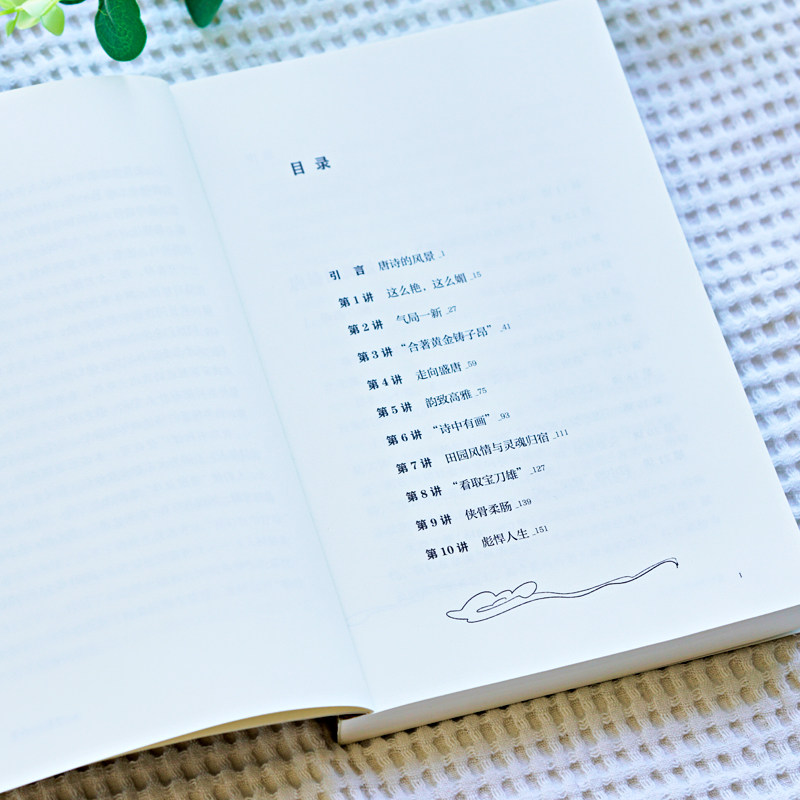 目 录
引 言 唐诗的风景_1
第1讲 这么艳，这么媚_15
第2讲 气局一新_27
第3讲 “合著黄金铸子昂”_41
第4讲 走向盛唐_59
第5讲 韵致高雅_75
第6讲 “诗中有画”_93
第7讲 田园风情与灵魂归宿_111
第8讲 “看取宝刀雄”_127
第9讲 侠骨柔肠_139
第10讲 彪悍人生_151
1